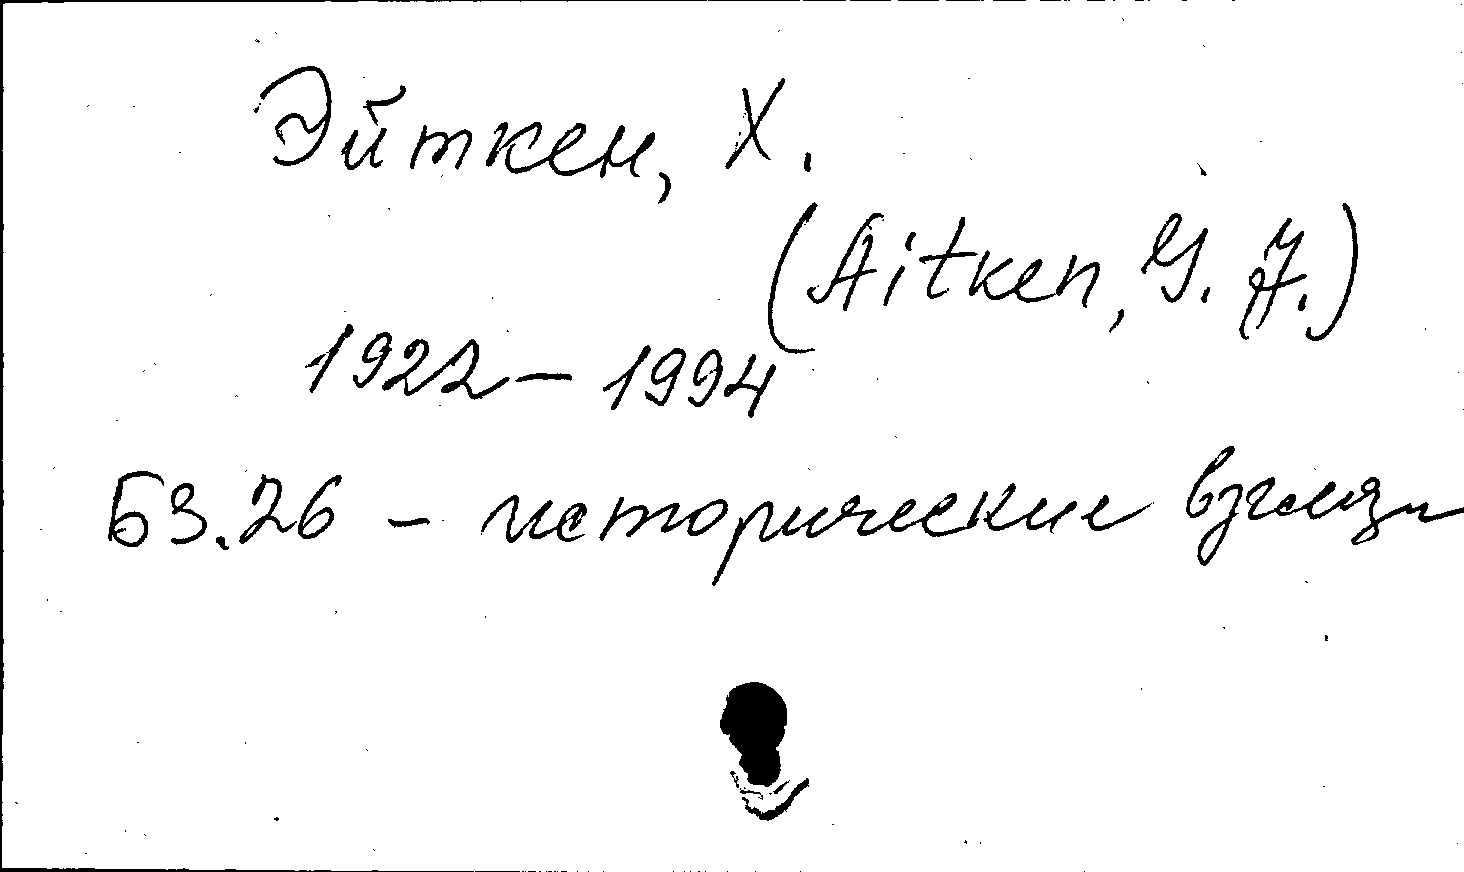 Эйткен, Х.
(Aitken, G. J.)
1922 – 1994
Б3.26 – исторические взгляды